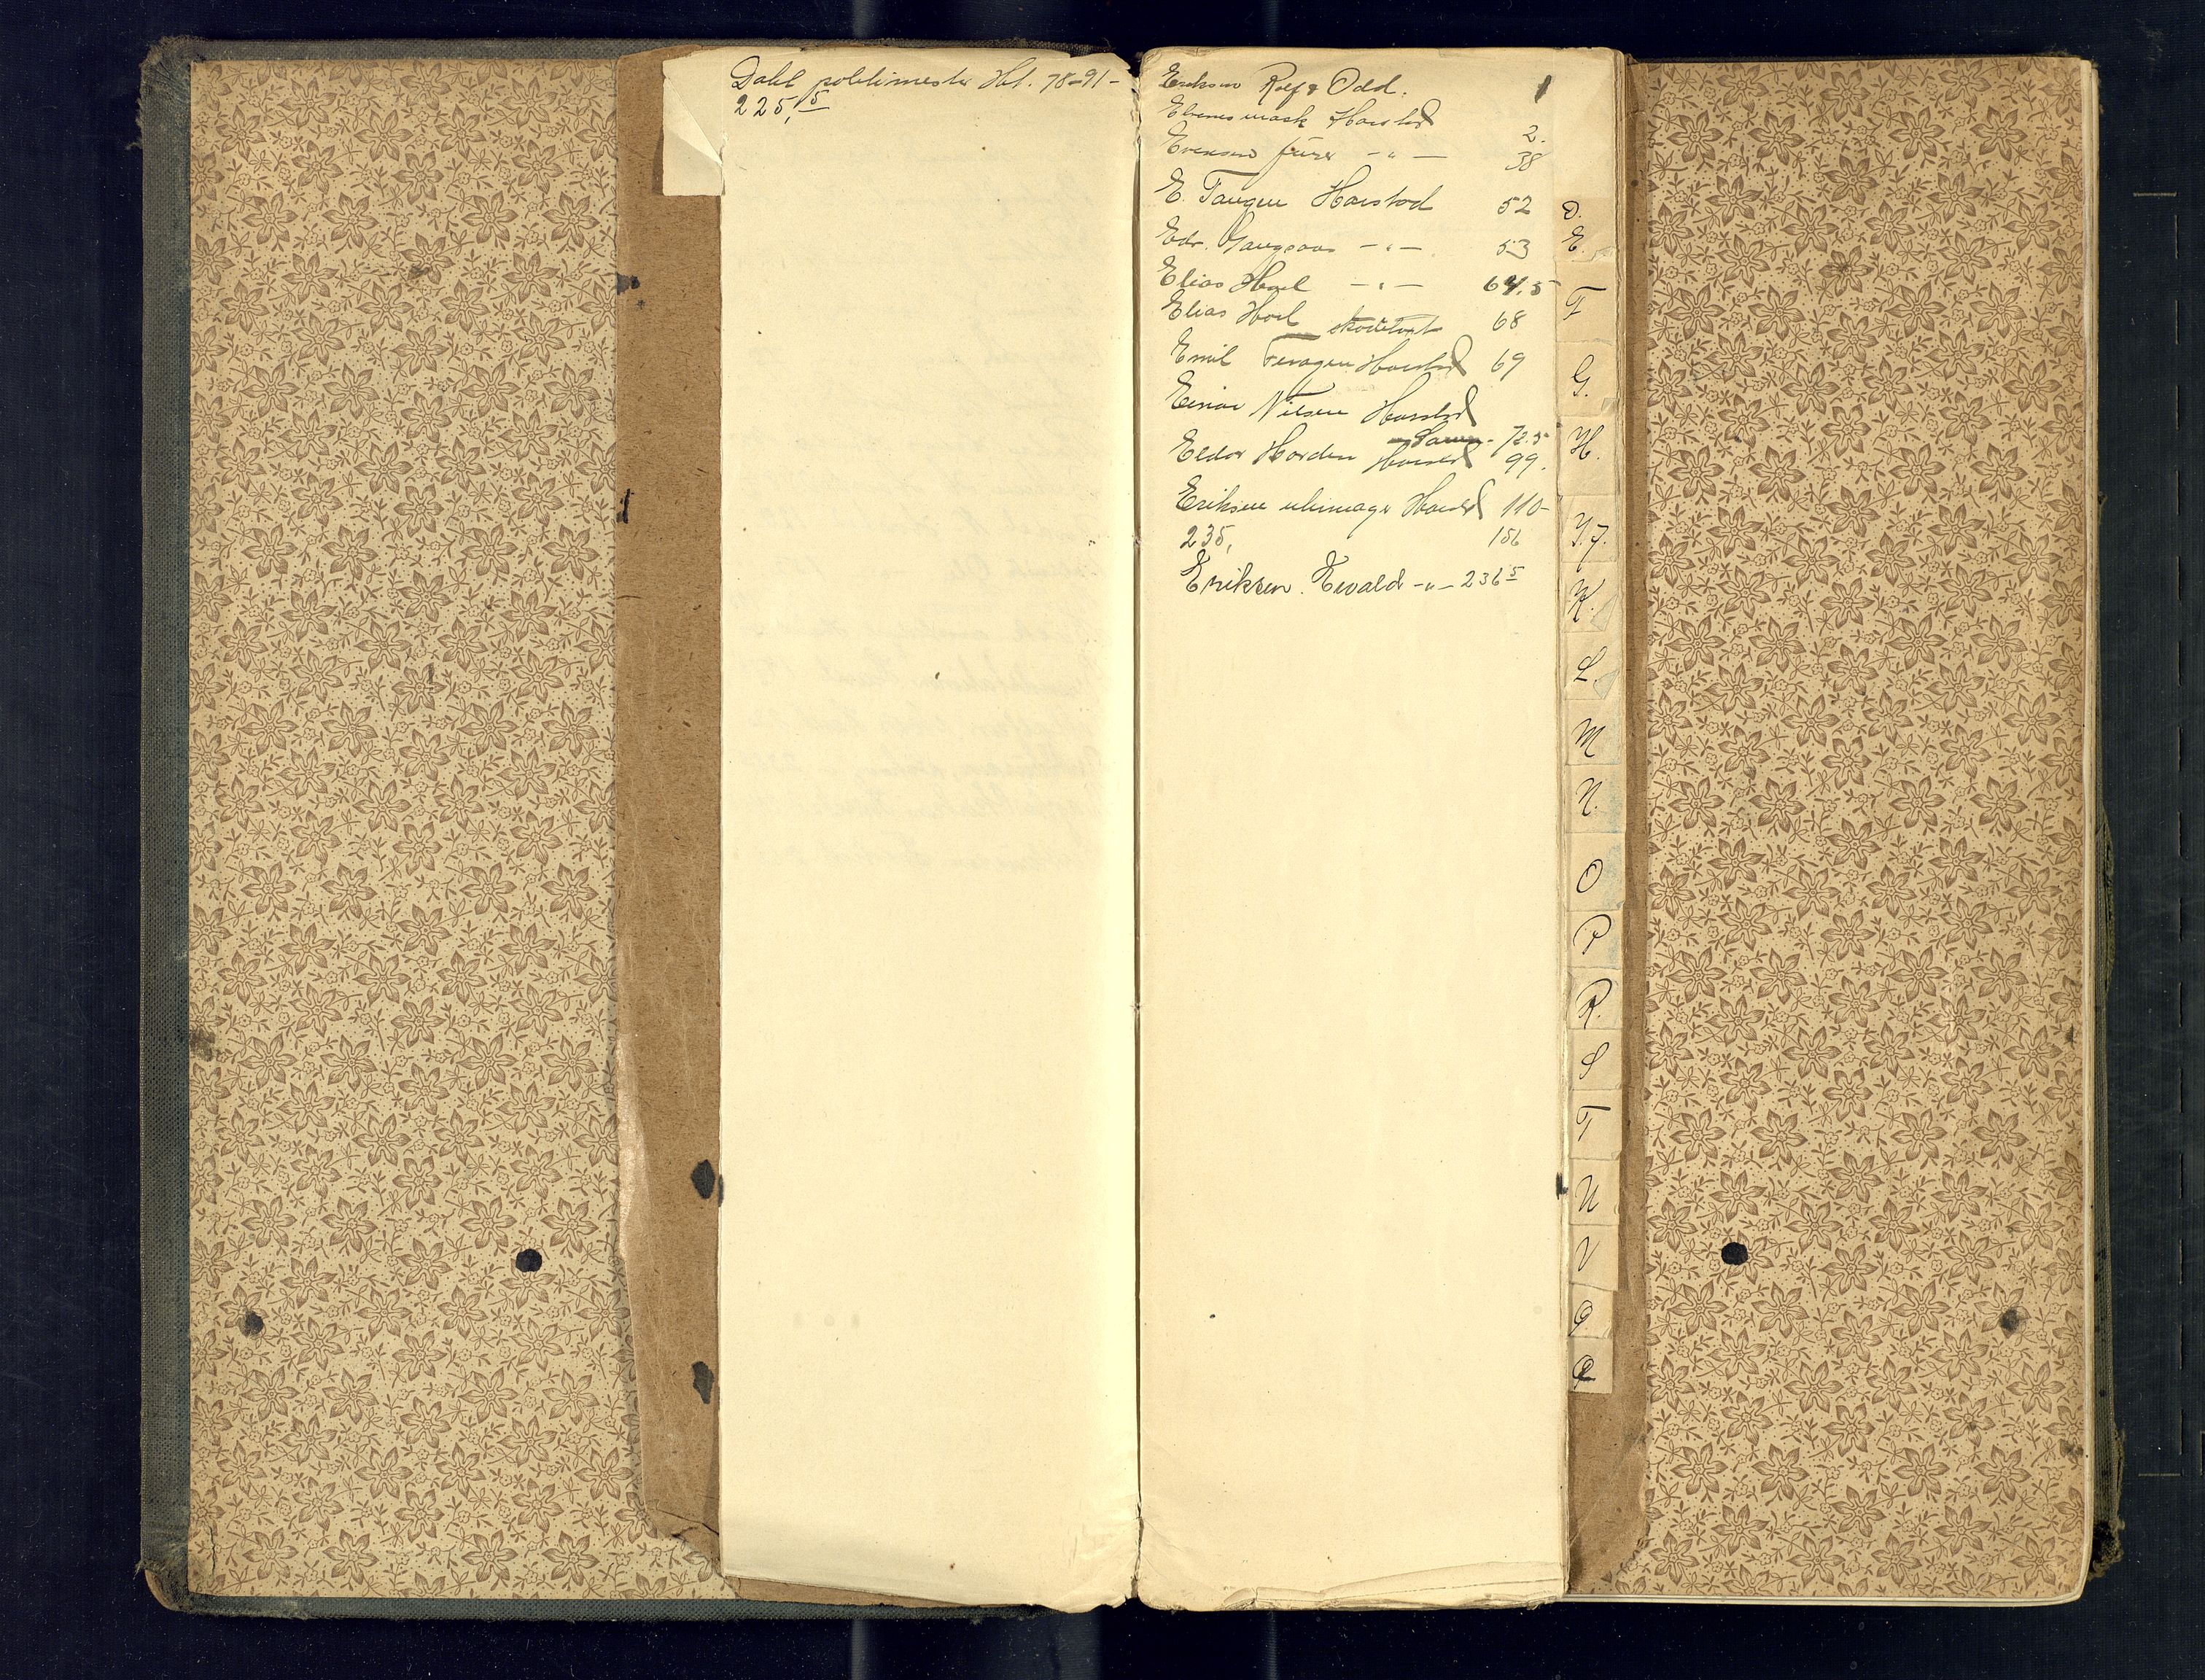 Dahl politimester Hst. 78-91-
225,5
Eriksen Rolf & Odd. 1
Ebenes mask Harstad 2.
Evensen frisør -"- 38
E. Tangen Harstad 52
Edv. -"- 53
Elias Hoel -"- 64.5
Elias Hoel 68
Emil Harstad 69
Einar Nilsen Harstad
72.5
Eldor Horden Harstad 99.
Eriksen uhrmager Harstad 110-
235, 156
Eriksen. Evald -"- 236 5
D.
E.
F
G.
H.
I.J.
K.
L.
M
N.
O
P
R.
S
T
U
V
Ø